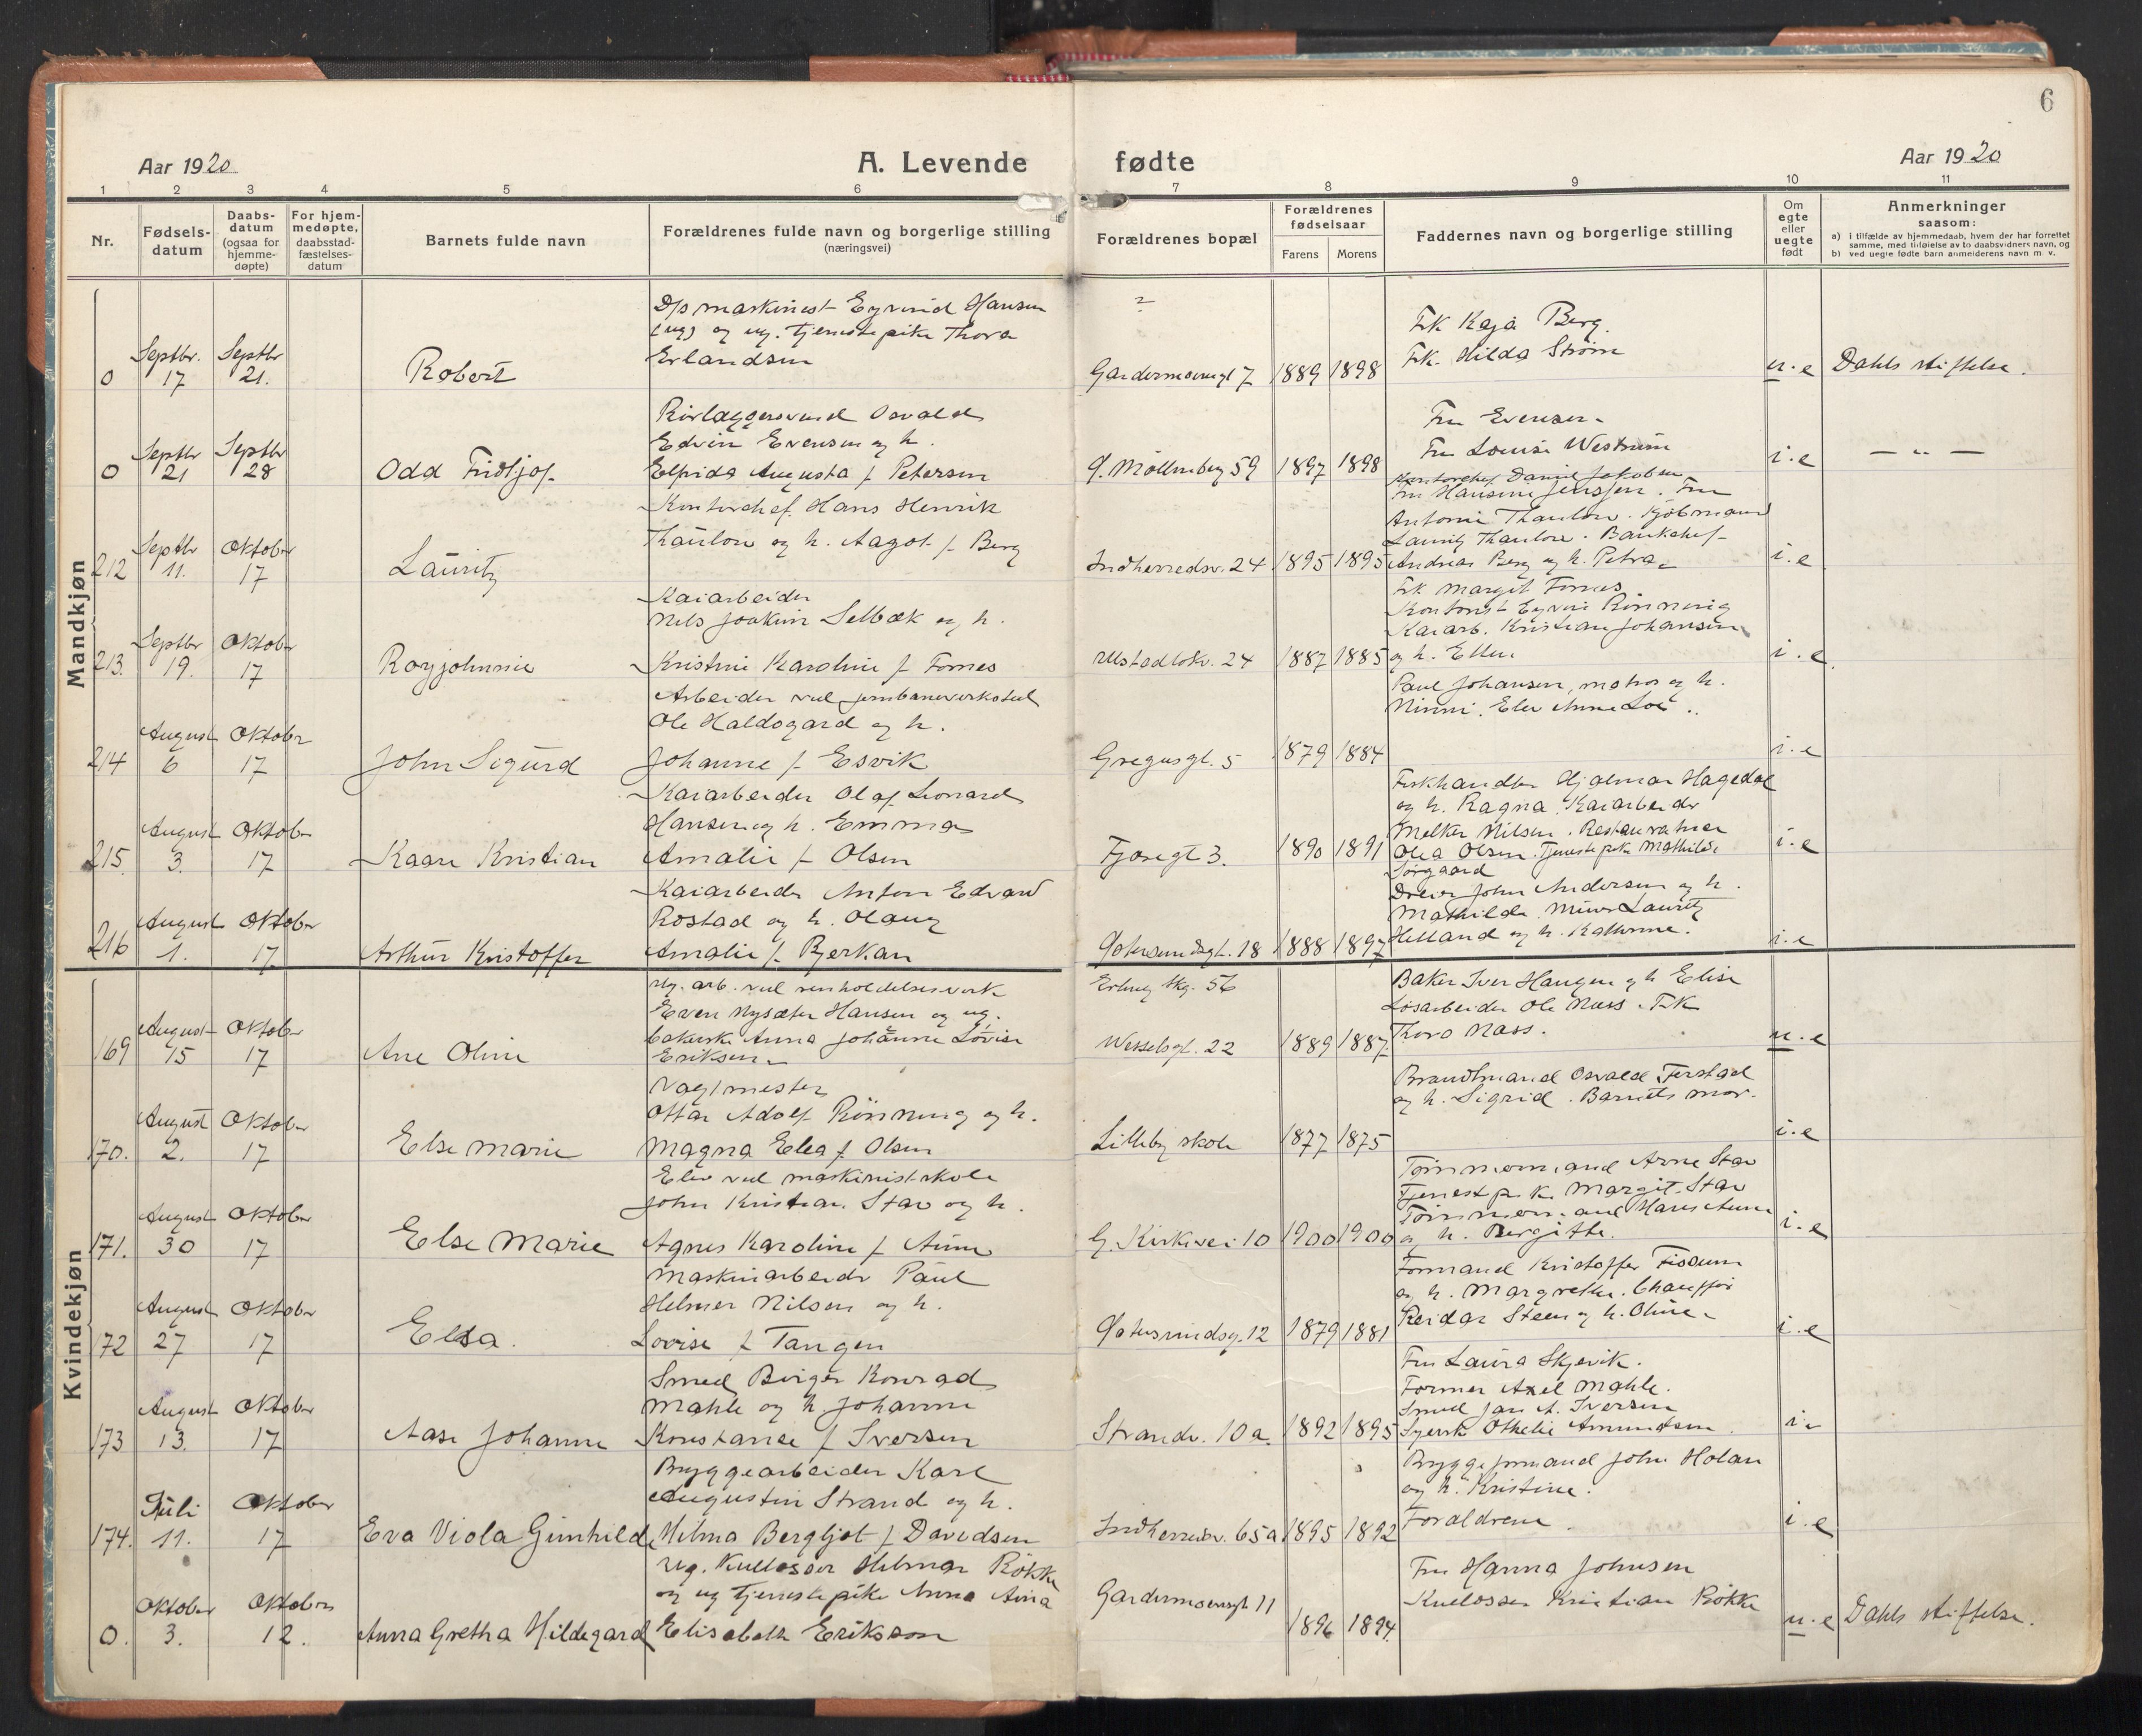 6
Aar 1920
A. Levende
fødte
Aar 1920
1 2 3 4 5 6 7 8 9 10 11
Nr.
Fødsels-
datum
Daabs-
datum
(ogsaa for
hjemme-
døpte)
For hjem-
medøpte,
daabsstad-
fæstelses-
datum
Barnets fulde navn
Forældrenes fulde navn og borgerlige stilling
(næringsvei)
Forældrenes bopæl
Forældrenes
fødselsaar
Farens Morens
Faddernes navn og borgerlige stilling
Om
egte
eller
uegte
født
Anmerkninger
saasom:
a) i tilfælde av hjemmedaab, hvem der har forrettet
samme, med tilføielse av to daabsvidners navn, og
b) ved uegte fødte barn anmelderens navn m. v.
Mandkjøn
0
Septbr. 17
Septbr 21.
Robert
D/s maskinist Eyvind Hansen
(ug) og ug. tjenestepike Thora
Erlandsen
Gardermoensgt 7
1889 1898
Frk Kaja Berg.
Frk. Hilda Strøm
u.e
Dahls stiftelse.
0
Septbr 21
Septbr 28
Odd Fridtjof
Rørlæggersvend Osvald
Edvin Evensen og h.
Elfrida Augusta f. Petersen
Ø. Möllenberg 59
1897 1898
Fru Evensen
Fru Louise Westrum
i.e
— " —
212
Septbr 11.
Oktober 17
Lauritz
Kontorchef Hans Henrik
Thaulow og h. Aagot f. Berg
Indherredsv. 24
1895 1895
Kontorchef Daniel Jakobsen
Fru Hansine Jenssen. Fru
Antonie Thaulow. Kjøbmand
Lauritz Thaulow. Bankchef
Andreas Berg og h. Petra
i.e
213.
Septbr 19.
Oktober 17
Roy Johnnie
Kaiarbeider
Nils Joakim Selbæk og h.
Kristine Karoline f. Fornes
Ulstadløkv. 24
1887 1885
Frk Margit Fornes
Kontorist Eyvin Rönning
Kaiarb. Kristian Johansen
og h. Ellen
i.e.
214
August 6
Oktober 17
John Sigurd
Arbeider ved jernbaneverksted
Ole Haldsgard og h.
Johanne f. Esvik
Gregusgt. 5
1879 1884
Paul Johansen, matros og h.
Ninni. Elev Anne Loe
i.e
215.
August 3.
Oktober 17
Kaare Kristian
Kaiarbeider Olaf Leonard
Hansen og h. Emma
Amalie f. Olsen
Fjæregt 3.
1890 1891
Fiskhandler Hjalmar Hagedal
og h. Ragna. Kaiarbeider
Melker Nilsen. Restauratrice
Olea Olsen. Tjenestepike Mathilde
Sörgaard
i.e
216
August 1.
Oktober 17
Arthur Kristoffer
Kaiarbeider Anton Edvard
Rostad og h. Olaug
Amalie f. Bjerkan
Østersundsgt. 18
1888 1897
Dreier John Andersen og h.
Mathilde. Murer Lauritz
Helland og h. Kathrine.
i.e
Kvindekjøn
169
August 15
Oktober 17
Ane Oline
Ug. arb. ved renholdelsesverk
Even Nysæter Hansen og ug.
bakerske Anna Johanne Lovise
Eriksen
56
Wesselsgt. 22
1889 1887.
Baker Iver Haugen og h Elise
Løsarbeider Ole Næss. Frk
Thora Næss.
u.e
170.
August 2.
Oktober 17
Else Marie
Vagtmester
Ottar Adolf Rönning og h.
Magna Elea f. Olsen
Lilleby skole
1877 1875
Brandmand Osvald
og h. Sigrid. Barnets mor.
i.e
171.
August 30
Oktober 17
Else Marie
Elev ved maskinistskole
John Kristian Stav og h.
Agnes Karoline f. Aune
G. Kirkevei 10
1900 1900
Tömmermand Arne Stav
Tjenestepike Margit Stav
Tömmermand Hans Aune
og h. Bergitte.
i.e
172
August 27
Oktober 17
Elsa.
Maskinarbeider Paul
Helmer Nilsen og h.
Lovise f. Tangen
Østersundsg. 12
1879 1881
Formand Kristoffer Fissum
og h. Margrethe. Chauffør
Reidar Steen og h. Oline
i.e
173
August 13.
Oktober 17
Aase Johanne
Smed Birger Konrad
Mahle og h. Johanne
Konstanse f. Iversen
Strandv. 10 a.
1892 1895
Fru Laura Skjevik.
Former Axel Mahle.
Smed Jan A. Iversen
Syersk. Othelie Amundsen
i.
174.
Juli 11.
Oktober 17
Eva Viola Gunhild
Bryggearbeider Karl
Augustin Strand og h.
Hilma Bergljot f. Davidsen
Indherredsv. 65a
1895 1892
Bryggeformand John Holan
og h. Kristine.
Forældrene
i.e
0.
Oktober 3.
Oktober 12.
Anna Gretha Hildegard
Ug. Kullosser Hilmar Rökke
og ug tjenestepike Anna Aina
Elisabeth Eriksson
Gardermoensgt 11
1896 1894.
Fru Hanna Johnsen
Kullosser Kristian Rökke
u.e
Dahls stiftelse.